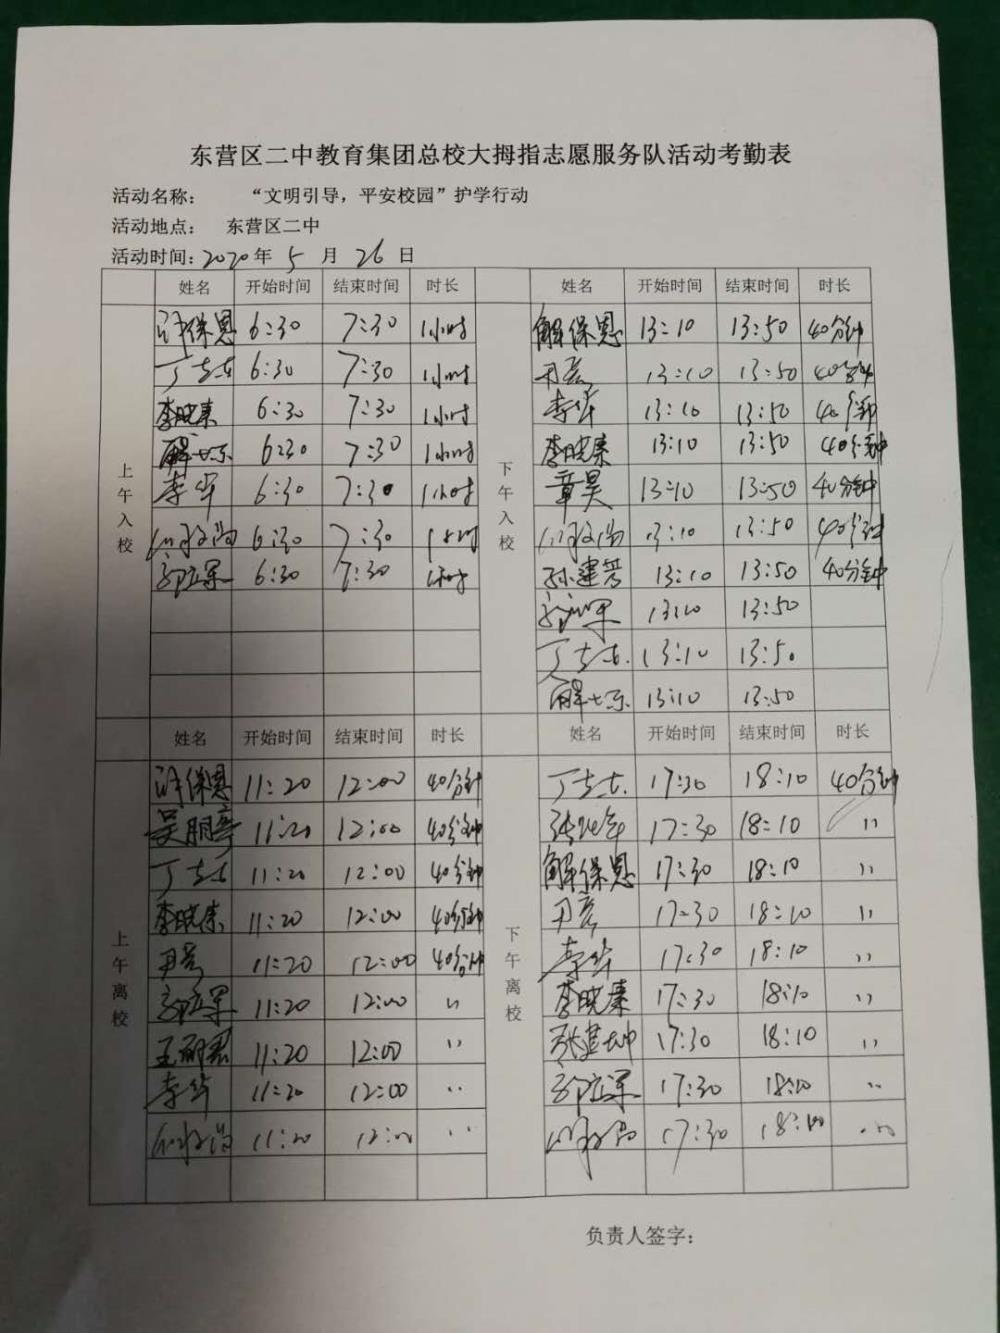 东营区二中教育集团总校大拇指志愿服务队活动考勤表
活动名称： “文明引导，平安校园”护学行动
活动地点： 东营区二中
活动时间：2020年 5 月 26 日
姓名 开始时间 结束时间 时长 姓名 开始时间 结束时间 时长
上午入校 下午入校
保恩 6:30 7:30 1小时 解保恩 13:10 13:50 40分钟
丁志 6:30 7:30 1小时 尹彦 13:10 13:50 40分钟
李晓秦 6:30 7:30 1小时 李华 13:10 13:50 40分钟
解 6:30 7:30 1小时 李晓秦 13:10 13:50 40分钟
李华 6:30 7:30 1小时 章昊 13:10 13:50 40分钟
6:30 7:30 1小时 13:10 13:50 40分钟
6:30 7:30 1小时 孙建 13:10 13:50 40分钟
13:10 13:50
丁志 13:10 13:50
解 13:10 13:50
姓名 开始时间 结束时间 时长 姓名 开始时间 结束时间 时长
上午离校 下午离校
保恩 11:20 12:00 40分钟 丁志 17:30 18:10 40分钟
吴朋 11:20 12:00 40分钟 张 17:30 18:10 〃
丁志 11:20 12:00 40分钟 解保恩 17:30 18:10 〃
李晓秦 11:20 12:00 40分钟 尹彦 17:30 18:10 〃
尹彦 11:20 12:00 40分钟 李华 17:30 18:10 〃
11:20 12:00 〃 李晓秦 17:30 18:10 〃
王 11:20 12:00 〃 张建坤 17:30 18:10 〃
李华 11:20 12:00 〃 17:30 18:10 〃
11:20 12:00 〃 17:30 18:10 〃
负责人签字：